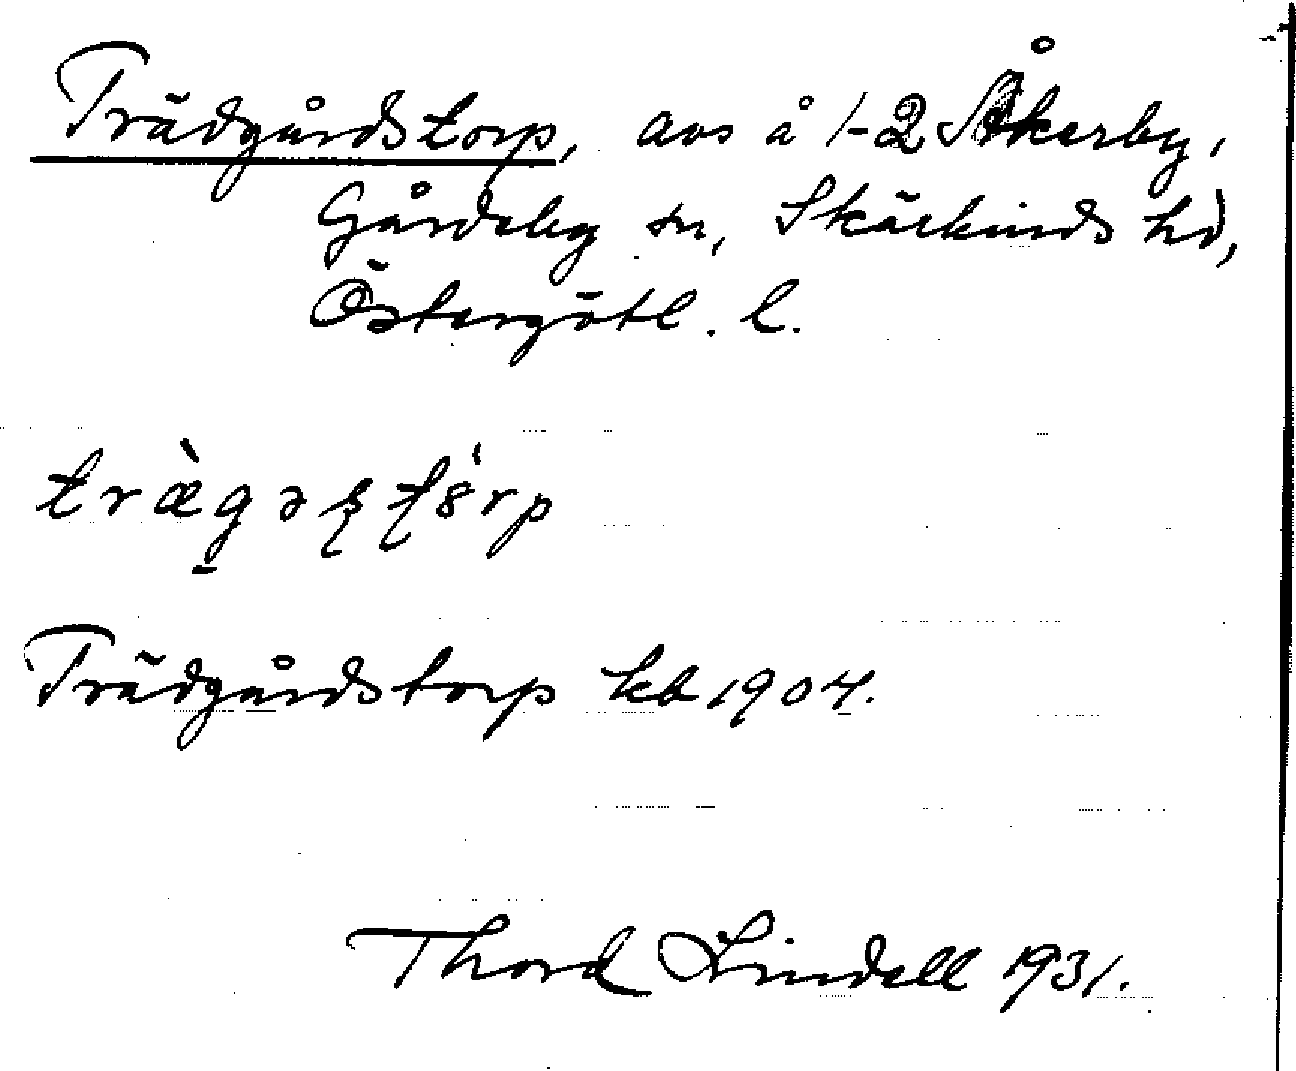 Trädgårdstorp, avs å 1-2 Åkerby,
Gårdeby sn, Skärkinds hd,
Östergötl. l.
træ̀gəʂʈ8́rp
Trädgårdstorp kb 1904.
Thord Lindell 1931.